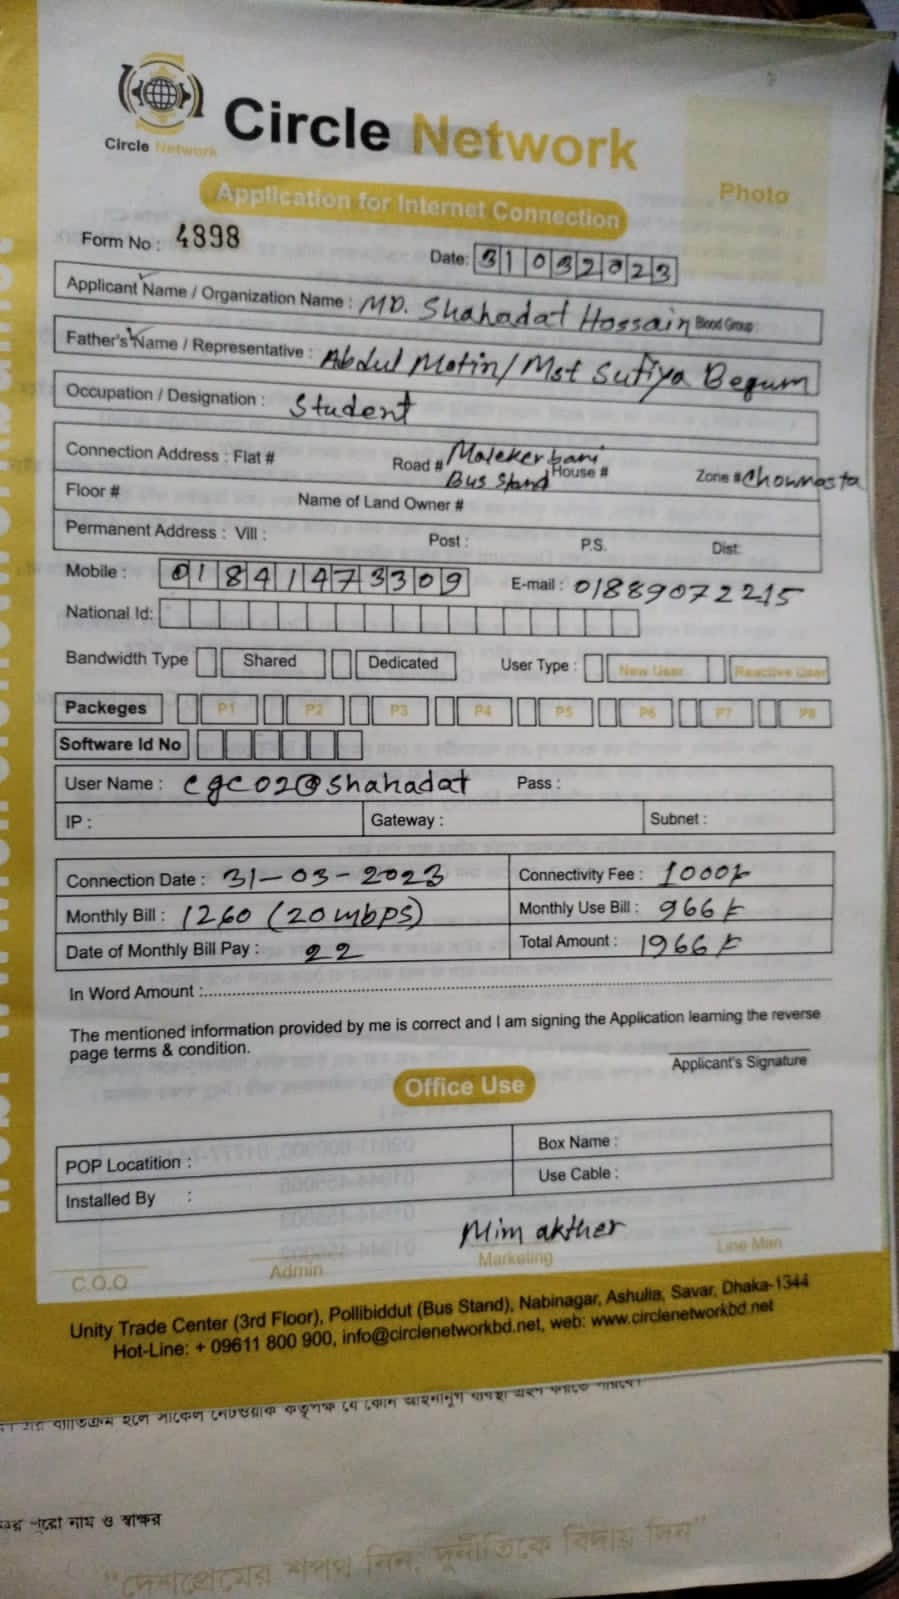 Circle Network
Circle Network
Application for Internet Connection
Photo
Form No : 4898
Date: 31032023
Applicant Name / Organization Name : MD. Shahadat Hossain Blood Group :
Father's Name / Representative : Abdul Motin/Mst Sufiya Begum
Occupation / Designation : Student
Connection Address : Flat # Road # Malekerbari Bus Stand House # Zone # Chowrasta
Floor # Name of Land Owner #
Permanent Address : Vill : Post : P.S. Dist:
Mobile : 01841473309 E-mail : 01889072215
National Id:
Bandwidth Type Shared Dedicated User Type : New User Reactive User
Packeges P1 P2 P3 P4 P5 P6 P7 P8
Software Id No
User Name : cgc02@shahadat Pass :
IP : Gateway : Subnet :
Connection Date : 31-03-2023 Connectivity Fee : 1000/-
Monthly Bill : 1260 (20mbps) Monthly Use Bill : 966/-
Date of Monthly Bill Pay : 22 Total Amount : 1966/-
In Word Amount :
The mentioned information provided by me is correct and I am signing the Application learning the reverse
page terms & condition.
Applicant's Signature
Office Use
POP Locatition : Box Name :
Installed By : Use Cable :
Mim akther
C.O.O Admin Marketing Line Man
Unity Trade Center (3rd Floor), Pollibiddut (Bus Stand), Nabinagar, Ashulia, Savar, Dhaka-1344
Hot-Line: + 09611 800 900, info@circlenetworkbd.net, web: www.circlenetworkbd.net
ব্যতিক্রম হলে সার্কেল নেটওয়ার্ক কর্তৃপক্ষ যে কোন আইনানুগ ব্যবস্থা গ্রহণ করতে পারবে।
পুরো নাম ও স্বাক্ষর
"দেশপ্রেমের শপথ নিন, দুর্নীতিকে বিদায় দিন"